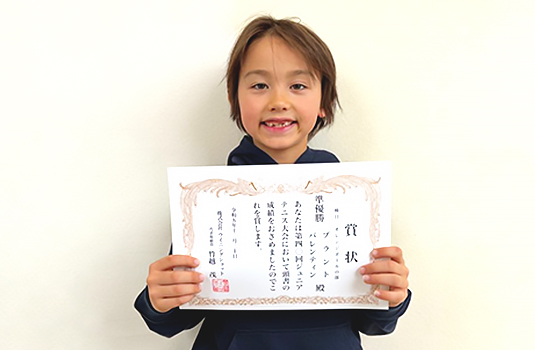 賞状
種目 オレンジボールの部
準優勝 ブラント
バレンティン 殿
あなたは第四回ジュニア
テニス大会において頭書の
成績をおさめましたのでこ
れを賞します。
株式会社ウイニングショット
竹越 茂